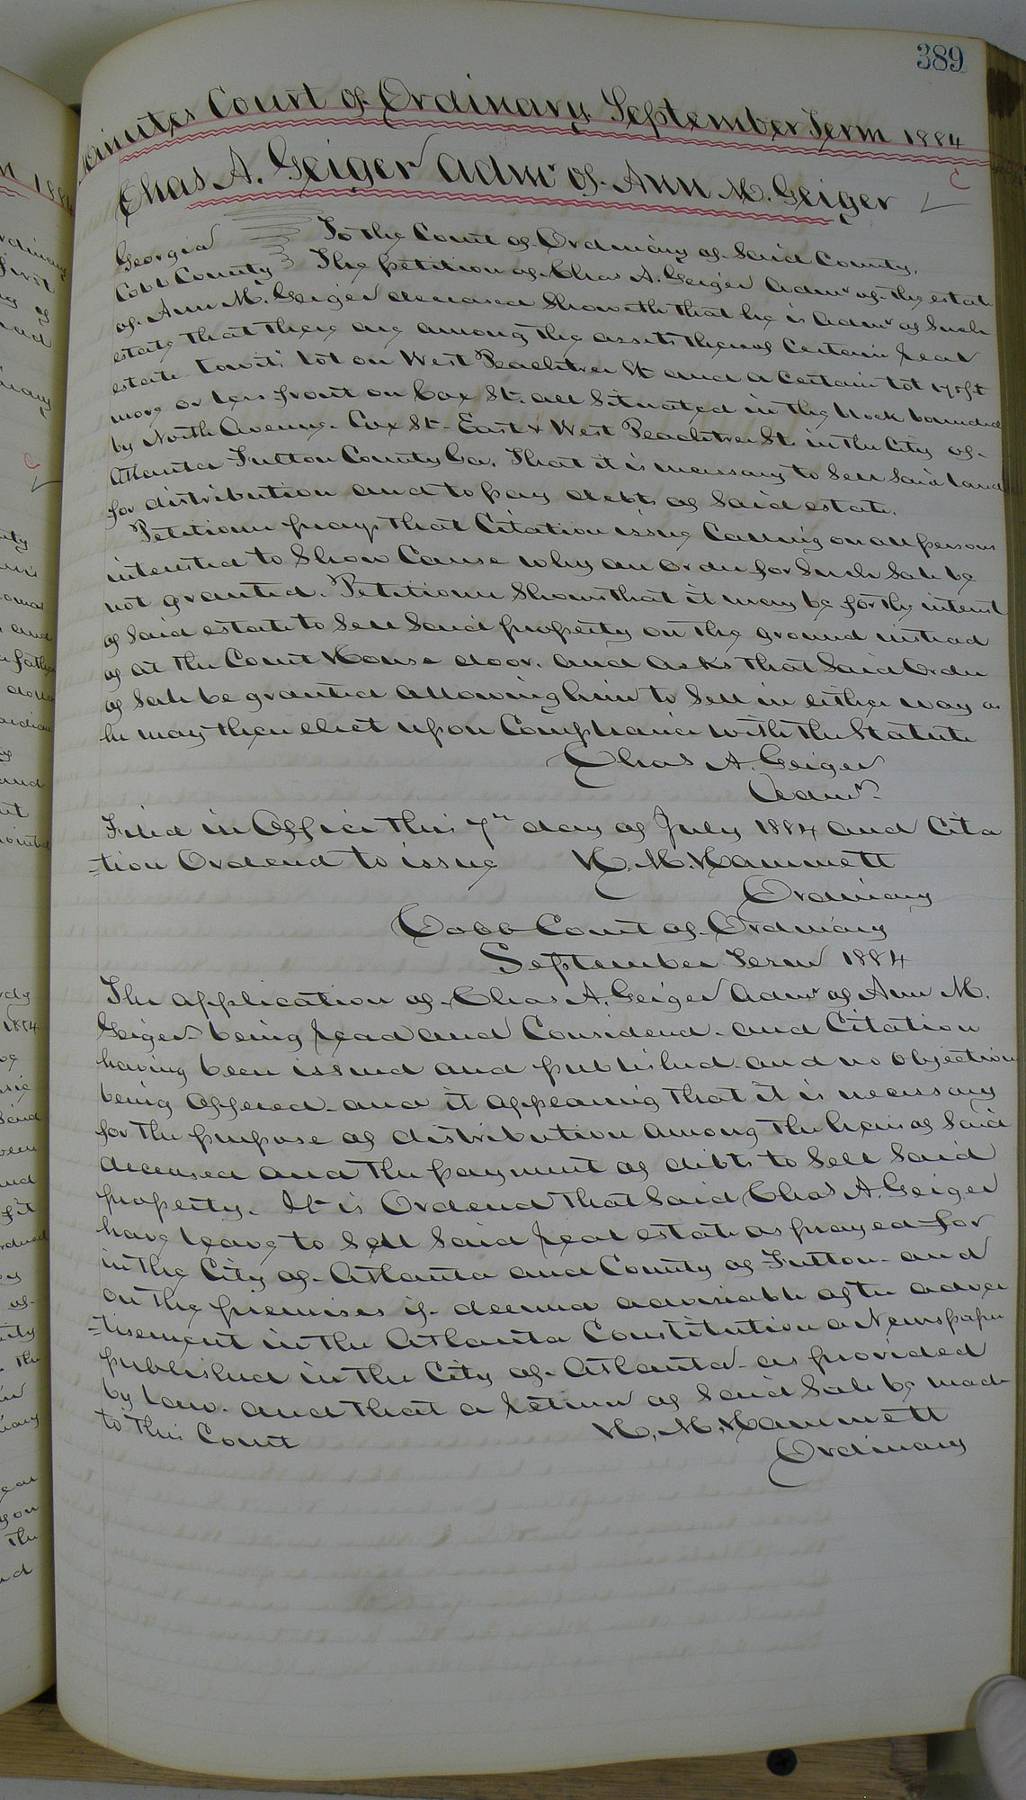 389
Minutes Court of Ordinary September Term 1884
Chas A. Geiger Admr of Ann M. Geiger
Georgia To the Court of Ordinary of Said County.
Cobb County The petition of Chas A. Geiger Admr of the estate
of Ann M. Geiger deceased Showeth that he is Admr of Such
estate that there are among the assets thereof Certain real
estate towit: lot on West Peachtree St and a Certain lot
more or less front on Cox St. all Situated in the block bounded
by North Avenue. Cox St. East & West Peachtree St. in the City of
Atlanta Fulton County Ga. That it is necessary to Sell Said land
for distribution and to pay debts of Said estate.
Petitioner prays that Citation issue Calling on all persons
interested to Show Cause why an order for Such Sale be
not granted. Petitioner Shows that it may be for the interest
of Said estate to Sell Said property on the ground instead
of at the Court House door. and asks that Said Order
of Sale be granted allowing him to Sell in either way as
he may then elect upon Compliance with the Statute
Chas A. Geiger
Admr.
Filed in Office this 7th day of July 1884 and Cita
=tion Ordered to issue H. M. Hammett
Ordinary
Cobb Court of Ordinary
September Term 1884
The application of Chas A. Geiger Admr of Ann M.
Geiger being read and Considered. and Citation
having been issued and published and no objection
being offered. and it appearing that it is necessary
for the purpose of distribution among the heirs of Said
deceased and the payment of debts to Sell Said
property. It is Ordered that Said Chas A. Geiger
have leave to Sell Said real estate as prayed for
in the City of Atlanta and County of Fulton. and
on the premises if deemed advisable after adver
=tisement in the Atlanta Constitution a Newspaper
published in the City of Atlanta as provided
by law. and that a return of Said Sale be made
to this Court H. M. Hammett
Ordinary